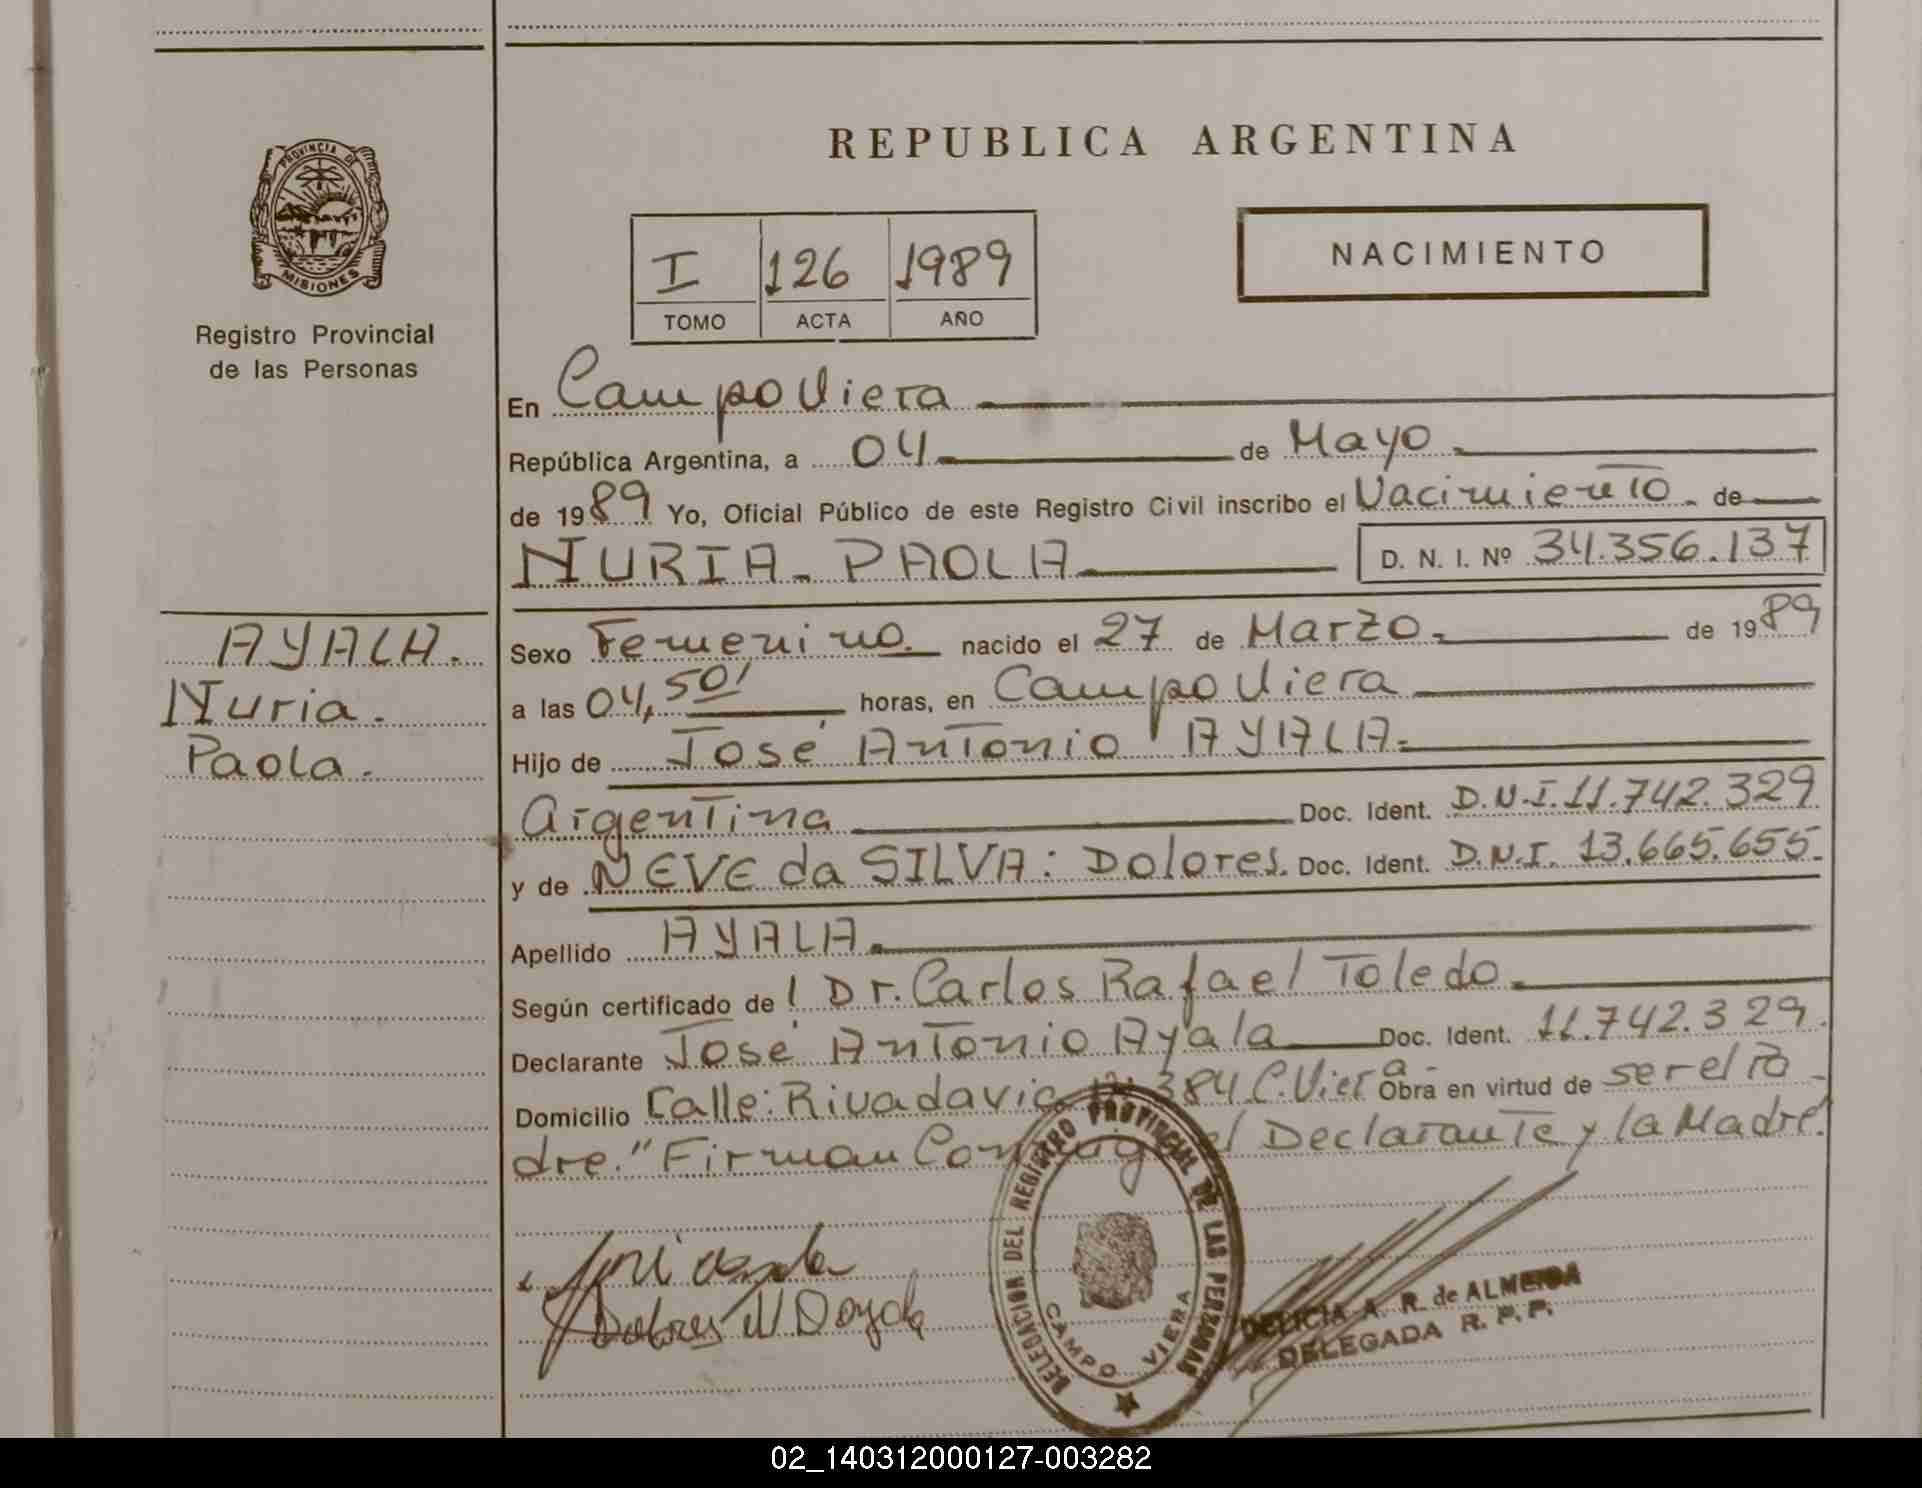 REPUBLICA ARGENTINA
PROVINCIA DE
MISIONES
Registro Provincial
de las Personas
I 126 1989
TOMO ACTA AÑO
NACIMIENTO
En Campo Viera
República Argentina, a 04 de Mayo
de 1989 Yo, Oficial Público de este Registro Civil inscribo el Nacimiento. de
NURIA. PAOLA D. N. I. Nº 34.356.137
AYALA.
Nuria.
Paola.
Sexo Femenino. nacido el 27 de Marzo. de 1989
a las 04,50' horas, en Campo Viera
Hijo de José Antonio AYALA.
Argentina Doc. Ident. D.N.I. 11.742.329
y de NEVE da SILVA: Dolores. Doc. Ident. D.N.I. 13.665.655.
Apellido AYALA.
Según certificado de ! Dr. Carlos Rafael Toledo.
Declarante José Antonio Ayala Doc. Ident. 11.742.329.
Domicilio Calle: Rivadavia 384 C. Viera - Obra en virtud de ser el Pa-
dre." Firman Conmigo el Declarante y la Madre.
Dolores N D
DELEGACION DEL REGISTRO PROVINCIAL DE LAS PERSONAS
CAMPO VIERA
DELICIA A. R. de ALMEIDA
DELEGADA R. P. P.
02_140312000127-003282